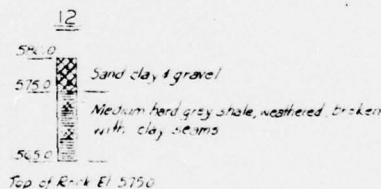 12
580.0
Sand clay & gravel
575.0
Medium hard grey shale, weathered, broken
with clay seams
565.0
Top of Rock El 575.0